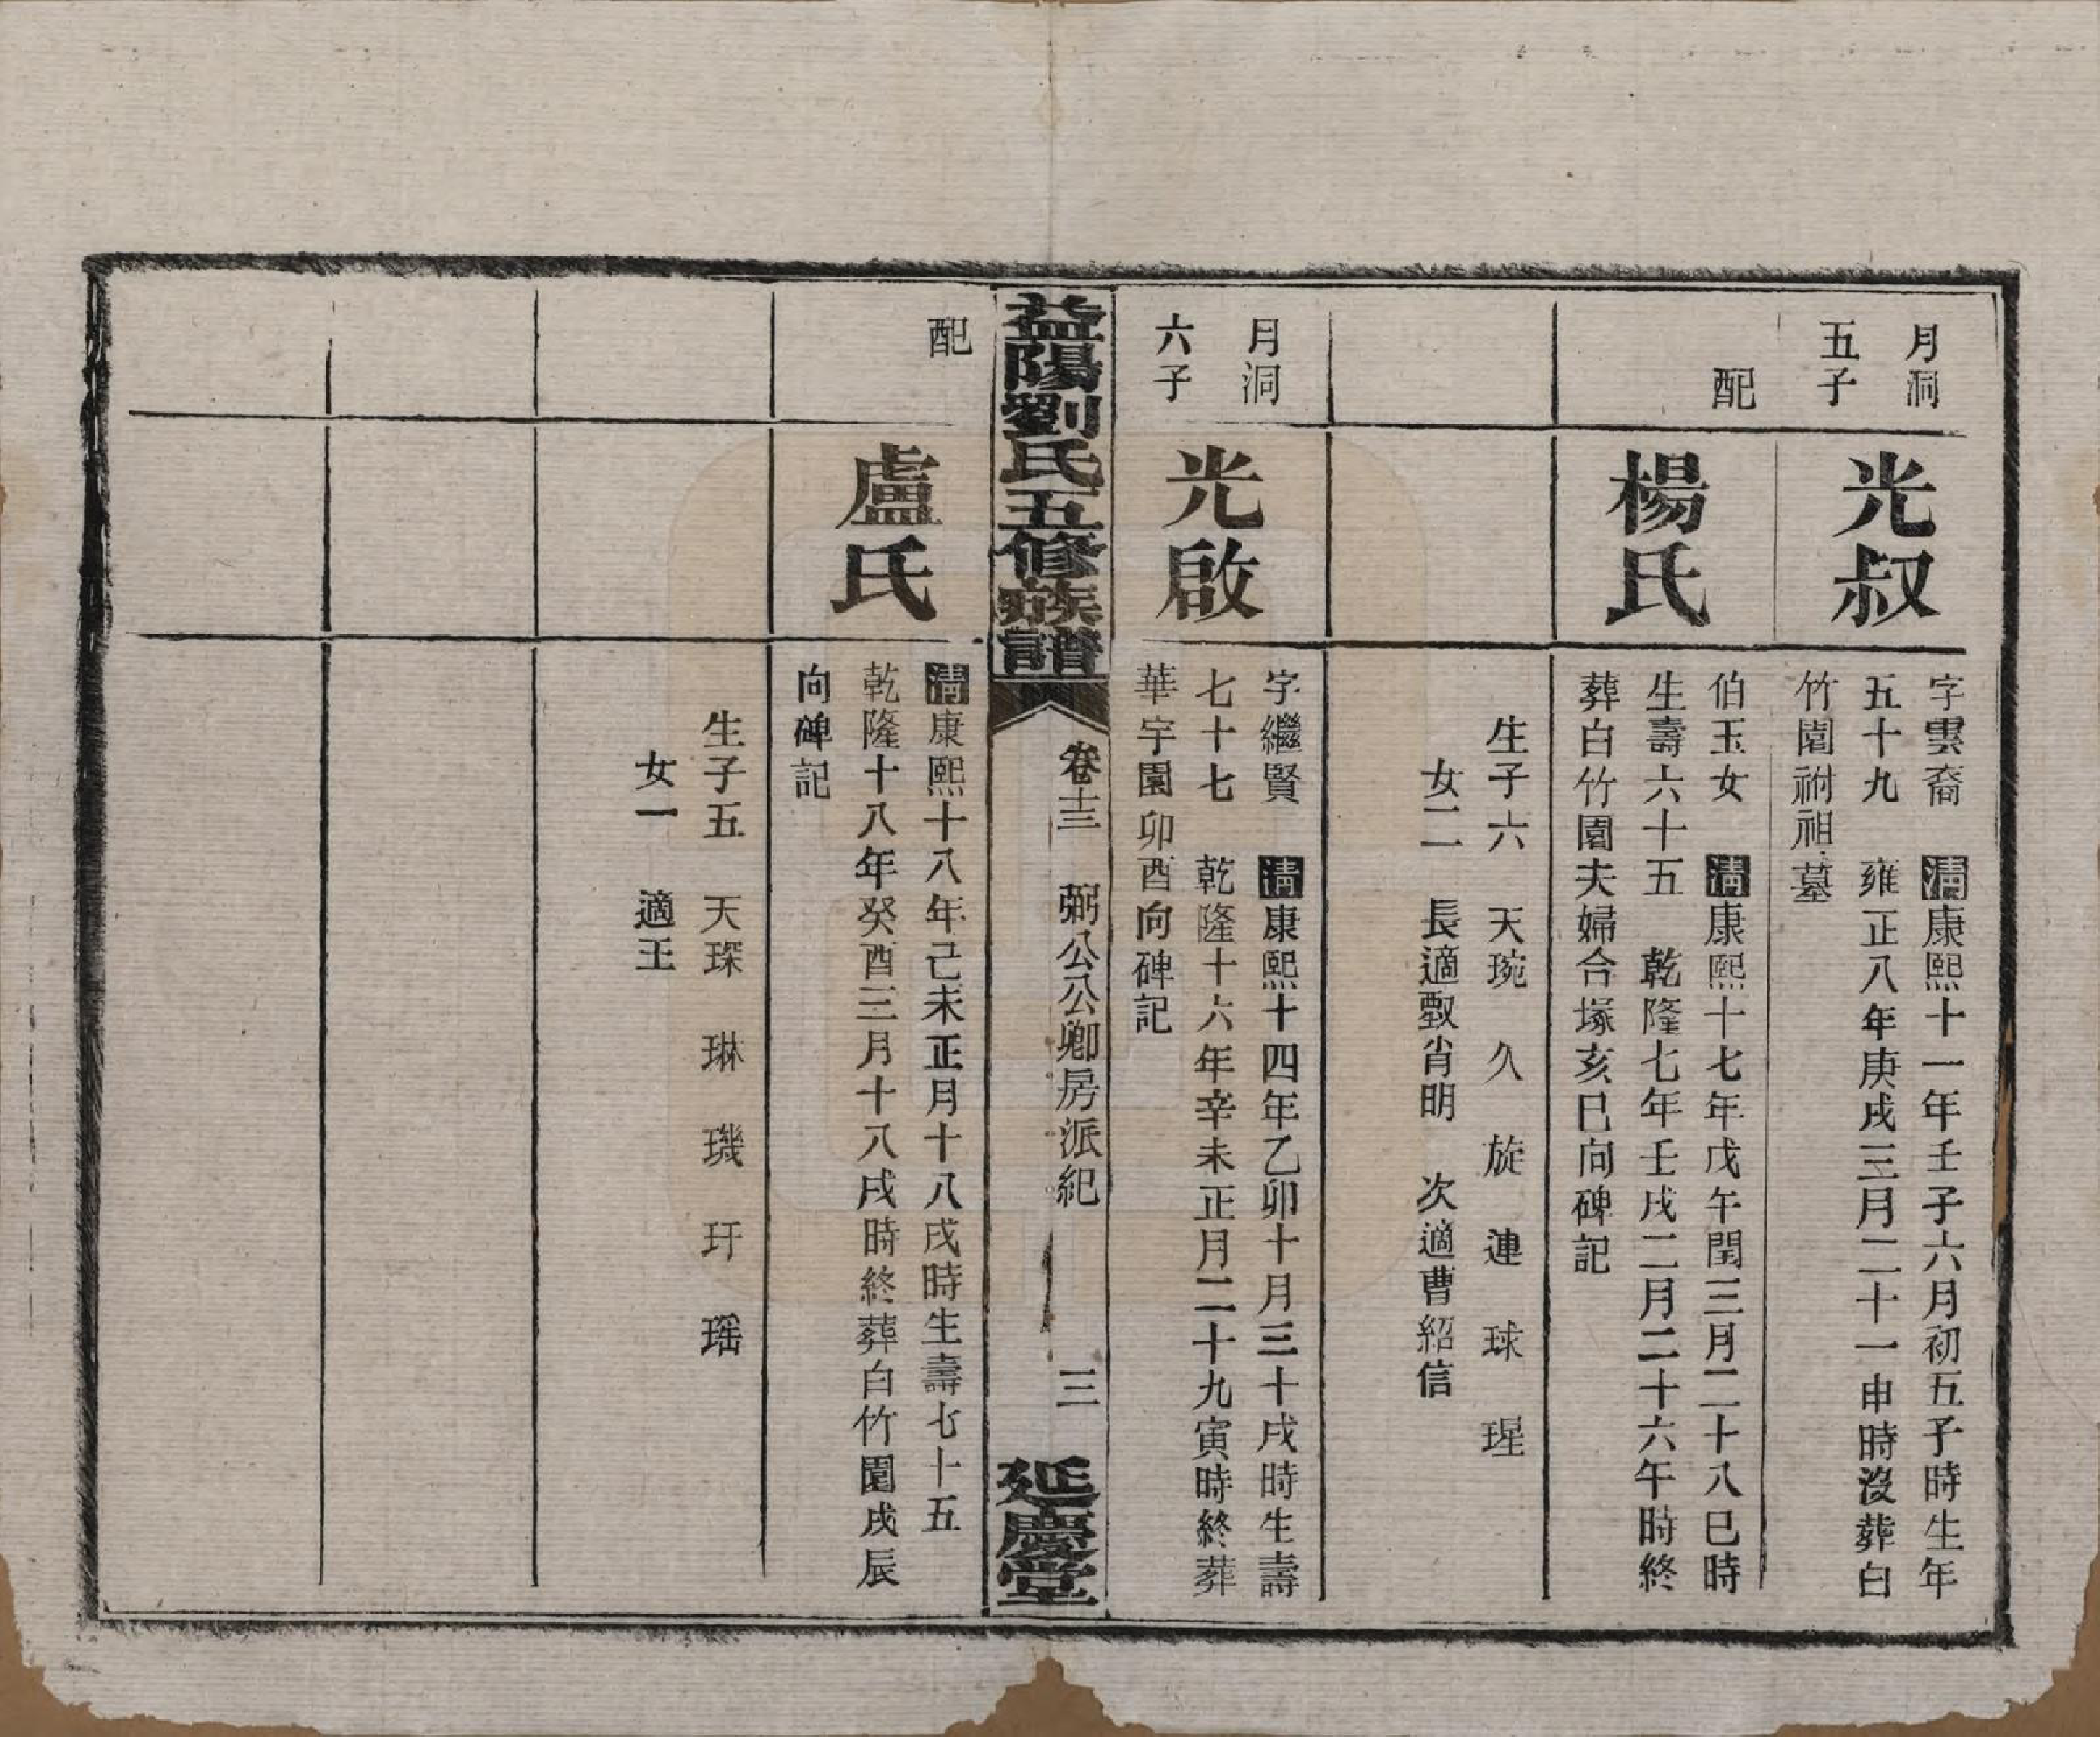 月洞
五子
光叔
字雲裔 清康熙十一年壬子六月初五子時生年
五十九 雍正八年庚戌三月二十一申時沒葬白
竹園祔祖墓
配
楊氏
伯玉女 清康熙十七年戊午閏三月二十八巳時
生壽六十五 乾隆七年壬戌二月二十六午時終
葬白竹園夫婦合塚亥巳向碑記
生子六 天琬 久 旋 連 球 瑆
女二 長適甄肖明 次適曹紹信
月洞
六子
光啟
字繼賢 清康熙十四年乙卯十月三十戌時生壽
七十七 乾隆十六年辛未正月二十九寅時終葬
華宇園卯酉向碑記
益陽劉氏五修族譜
卷十三 弼公公卿房派紀 三
延慶堂
配
盧氏
清康熙十八年己未正月十八戌時生壽七十五
乾隆十八年癸酉三月十八戌時終葬白竹園戌辰
向碑記
生子五 天琛 琳 璣 玕 瑶
女一 適王